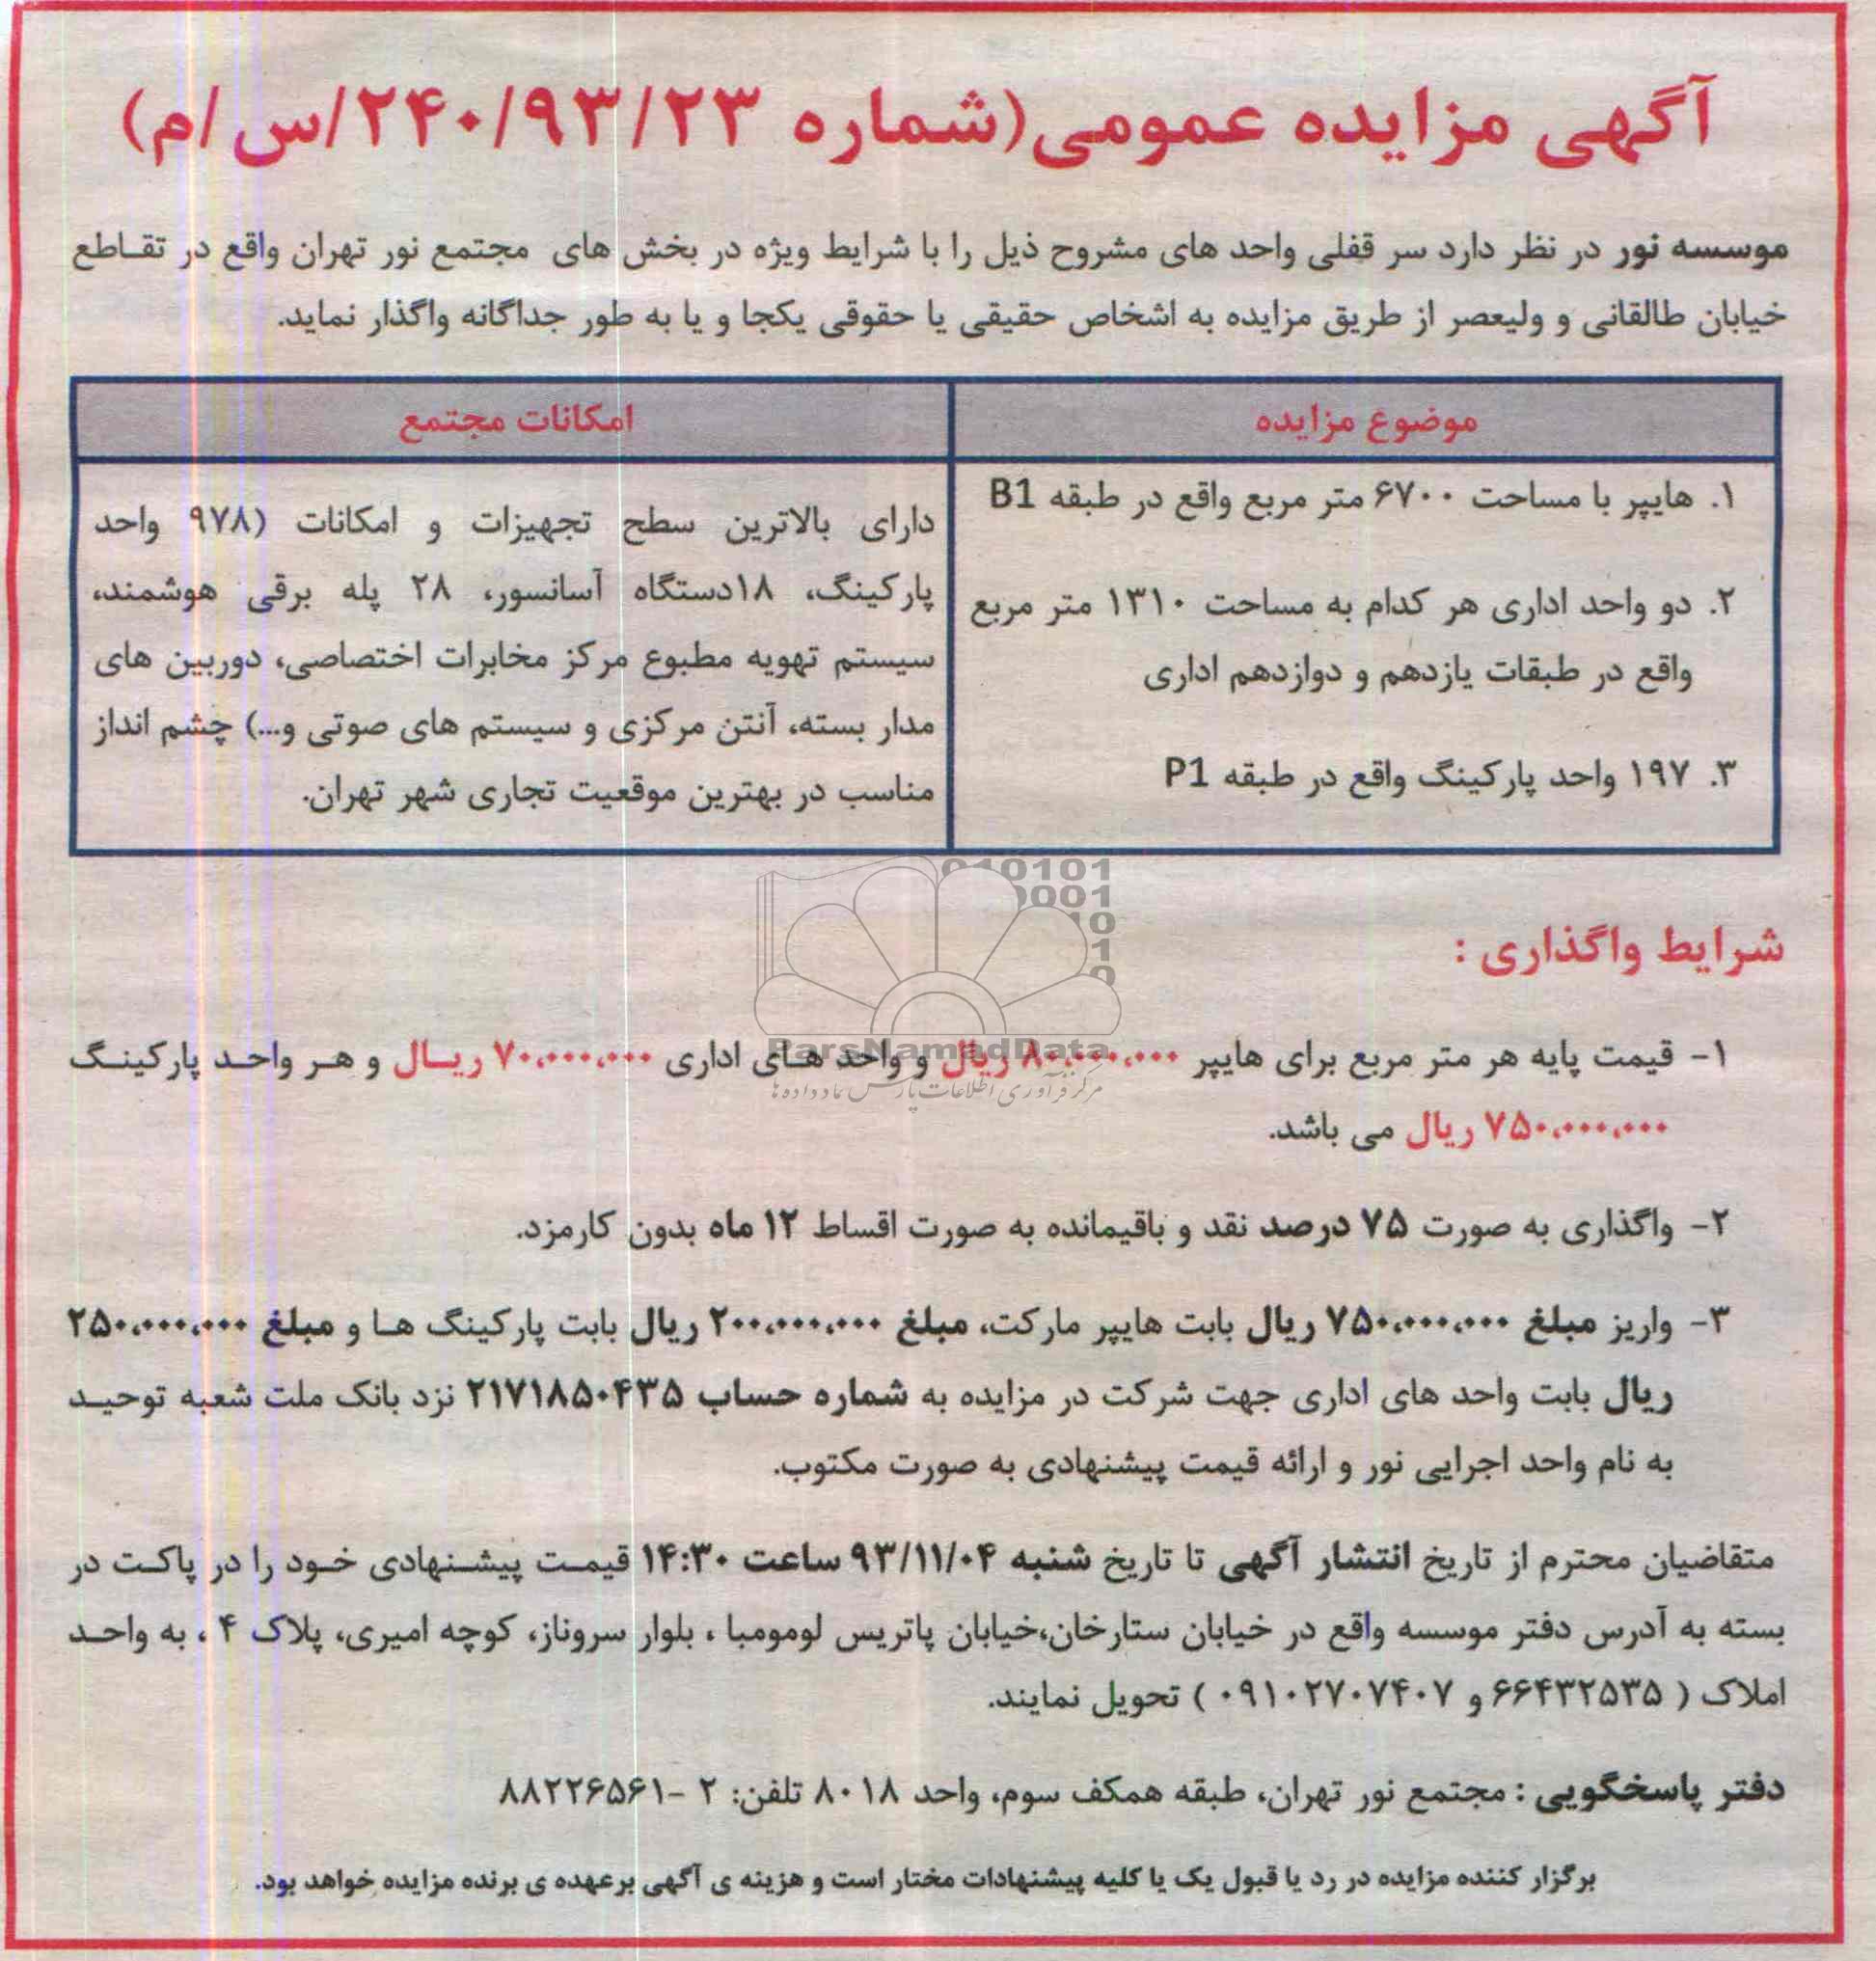 آگهی مزایده عمومی(شماره ۲۴۰/۹۳/۲۳/س/م)
موسسه نور در نظر دارد سر قفلی واحد های مشروح ذیل را با شرایط ویژه در بخش های مجتمع نور تهران واقع در تقاطع
خیابان طالقانی و ولیعصر از طریق مزایده به اشخاص حقیقی یا حقوقی یکجا و یا به طور جداگانه واگذار نماید.
موضوع مزایده
۱. هایپر با مساحت ۶۷۰۰ متر مربع واقع در طبقه B1
۲. دو واحد اداری هر کدام به مساحت ۱۳۱۰ متر مربع
واقع در طبقات یازدهم و دوازدهم اداری
۳. ۱۹۷ واحد پارکینگ واقع در طبقه P1
امکانات مجتمع
دارای بالاترین سطح تجهیزات و امکانات (۹۷۸ واحد
پارکینگ، ۱۸دستگاه آسانسور، ۲۸ پله برقی هوشمند،
سیستم تهویه مطبوع مرکز مخابرات اختصاصی، دوربین های
مدار بسته، آنتن مرکزی و سیستم های صوتی و...) چشم انداز
مناسب در بهترین موقعیت تجاری شهر تهران.
شرایط واگذاری :
۱- قیمت پایه هر متر مربع برای هایپر ۸۰،۰۰۰،۰۰۰ ریال و واحد های اداری ۷۰،۰۰۰،۰۰۰ ریال و هر واحد پارکینگ
۷۵۰،۰۰۰،۰۰۰ ریال می باشد.
۲- واگذاری به صورت ۷۵ درصد نقد و باقیمانده به صورت اقساط ۱۲ ماه بدون کارمزد.
۳- واریز مبلغ ۷۵۰،۰۰۰،۰۰۰ ریال بابت هایپر مارکت، مبلغ ۲۰۰،۰۰۰،۰۰۰ ریال بابت پارکینگ ها و مبلغ ۲۵۰،۰۰۰،۰۰۰
ریال بابت واحد های اداری جهت شرکت در مزایده به شماره حساب ۲۱۷۱۸۵۰۴۳۵ نزد بانک ملت شعبه توحید
به نام واحد اجرایی نور و ارائه قیمت پیشنهادی به صورت مکتوب.
متقاضیان محترم از تاریخ انتشار آگهی تا تاریخ شنبه ۹۳/۱۱/۰۴ ساعت ۱۴:۳۰ قیمت پیشنهادی خود را در پاکت در
بسته به آدرس دفتر موسسه واقع در خیابان ستارخان،خیابان پاتریس لومومبا ، بلوار سروناز، کوچه امیری، پلاک ۴ ، به واحد
املاک ( ۶۶۴۳۲۵۳۵ و ۰۹۱۰۲۷۰۷۴۰۷ ) تحویل نمایند.
دفتر پاسخگویی : مجتمع نور تهران، طبقه همکف سوم، واحد ۸۰۱۸ تلفن: ۲ -۸۸۲۲۶۵۶۱
برگزار کننده مزایده در رد یا قبول یک یا کلیه پیشنهادات مختار است و هزینه ی آگهی برعهده ی برنده مزایده خواهد بود.
ParsNamadData
مرکز فرآوری اطلاعات پارس نماد داده ها